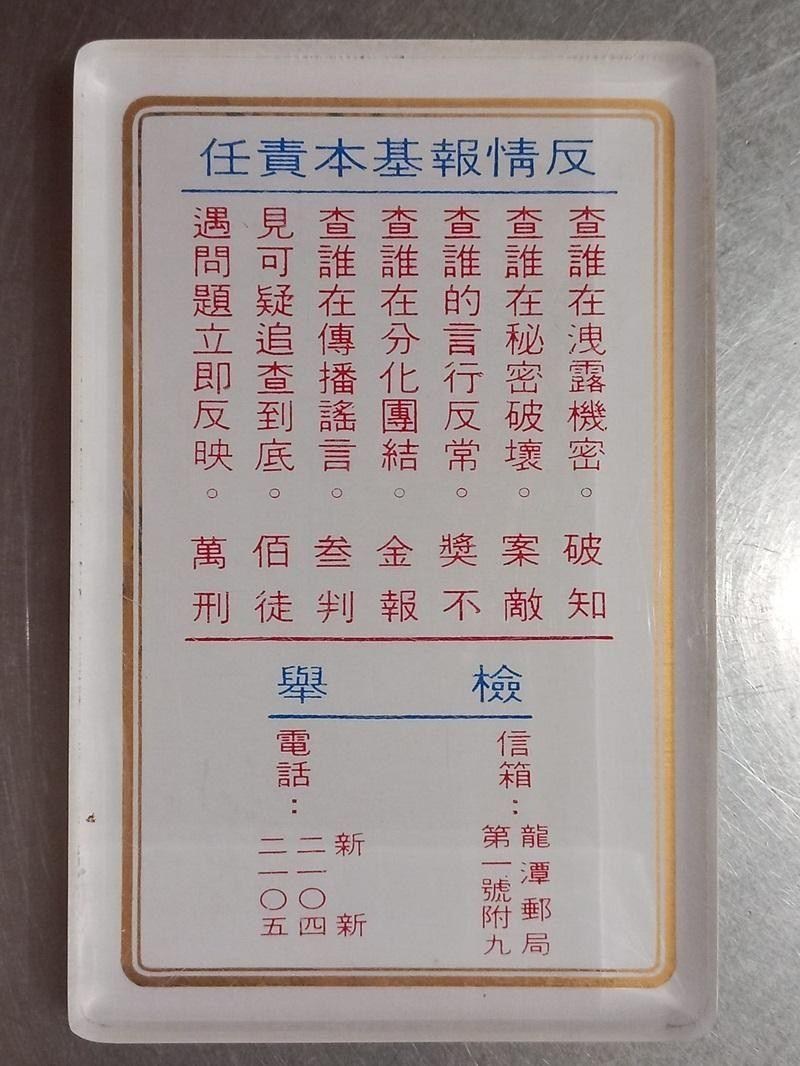 反情報基本責任
查誰在洩露機密。
查誰在秘密破壞。
查誰的言行反常。
查誰在分化團結。
查誰在傳播謠言。
見可疑追查到底。
遇問題立即反映。
破案獎金叁佰萬
知敵不報判徒刑
檢舉
信箱：
龍潭郵局
第一號附九
電話：
新新
二一〇四
二一〇五